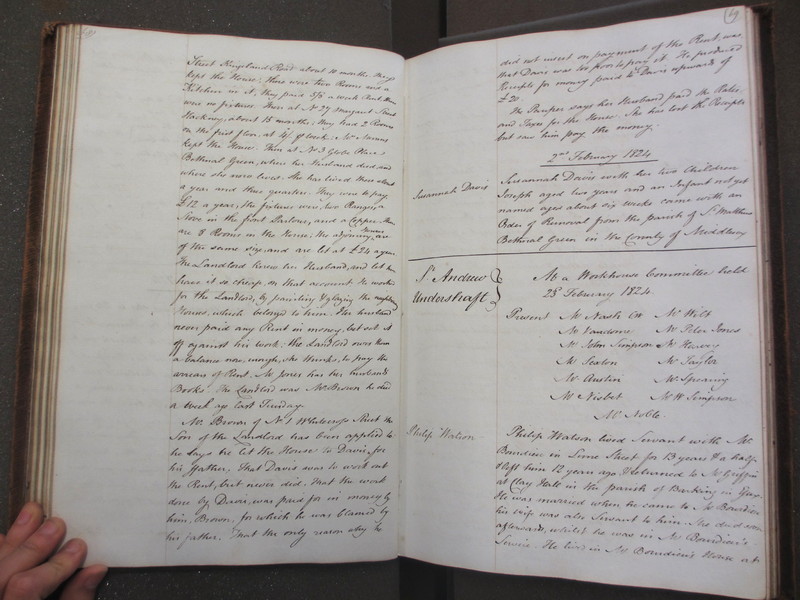 Street Kingsland Road about 10 months. they
kept the House: there were two Rooms and a
Kitchen in it, they paid 5/6 a week Rent, there
were no fixtures. Then at No 27 Margaret Street
Hackney, about 18 months; they had 2 Rooms
on the first floor, at 4/. Week: Mr
kept the House. Then at No 3 Globe Place
Bethnal Green, where her Husband died and
where she now lives. She has lived there about
a year and three quarters. They were to pay
£12 a year; the fixtures were, two Ranges, a
Stove in the front Parlour, and a Copper. there
are 8 Rooms in the House; the adjoining houses are
of the same size, and are let at £24 a year
The Landlord knew her Husband, and let him
have it so cheap, on that account. He worked
for the Landlord, by painting & glazing the neighbouring
Houses, which belonged to him. Her husband
never paid any Rent in money, but set it
off against his work: the Landlord owes them
a balance now, enough, she thinks, to pay the
arrears of Rent. Mr Jones has her husbands
Books. The Landlord was Mr Brown he died
a week ago last Tuesday.
Mr. Brown of No 1 Whitecross Street the
Son of the Landlord has been applied to
he says he let the House to Davis, for
his father. That Davis was to work out
the Rent, but never did. That the work
done by Davis, was paid for in money by
him, Brown, for which he was blamed by
his father. That the only reason why he
69
did not insist on payment of the Rent, was
that Davis was too poor to pay it. He produced
Receipts for money paid to Davis upwards of
£20
The Pauper says her Husband paid the Rates,
and Taxes for the House. She has lost the Receipts
but saw him pay the money.
2nd February 1824
Susannah Davis
Susannah Davis with her two Children
Joseph aged two years and an Infant not yet
named aged about six weeks came with an
Order of Removal from the parish of St Matthew
Bethnal Green in the County of Middlesex
St Andrew
Undershaft
At a Workhouse Committee held
23d February 1824.
Present Mr Nash Mr Wilt
Mr Vandome Mr Peter Jones
Mr John Simpson Mr Harvey
Mr Sexton Mr Taylor
Mr Austin Mr Spearing
Mr Nisbet Mr W Simpson
Mr Noble.
Philip Watson
Philip Watson lived Servant with Mr
Bourdieu in Lime Street for 13 years & a half
& left him 12 years ago & returned to Mr Griffin
at Clay Hall in the parish of Barking in Essex.
He was married when he came to Mr Bourdieu
his wife was also Servant to him. She died soon
afterwards, whilst he was in Mr Bourdieu's
Service. He lived in Mr Bourdieu's House at